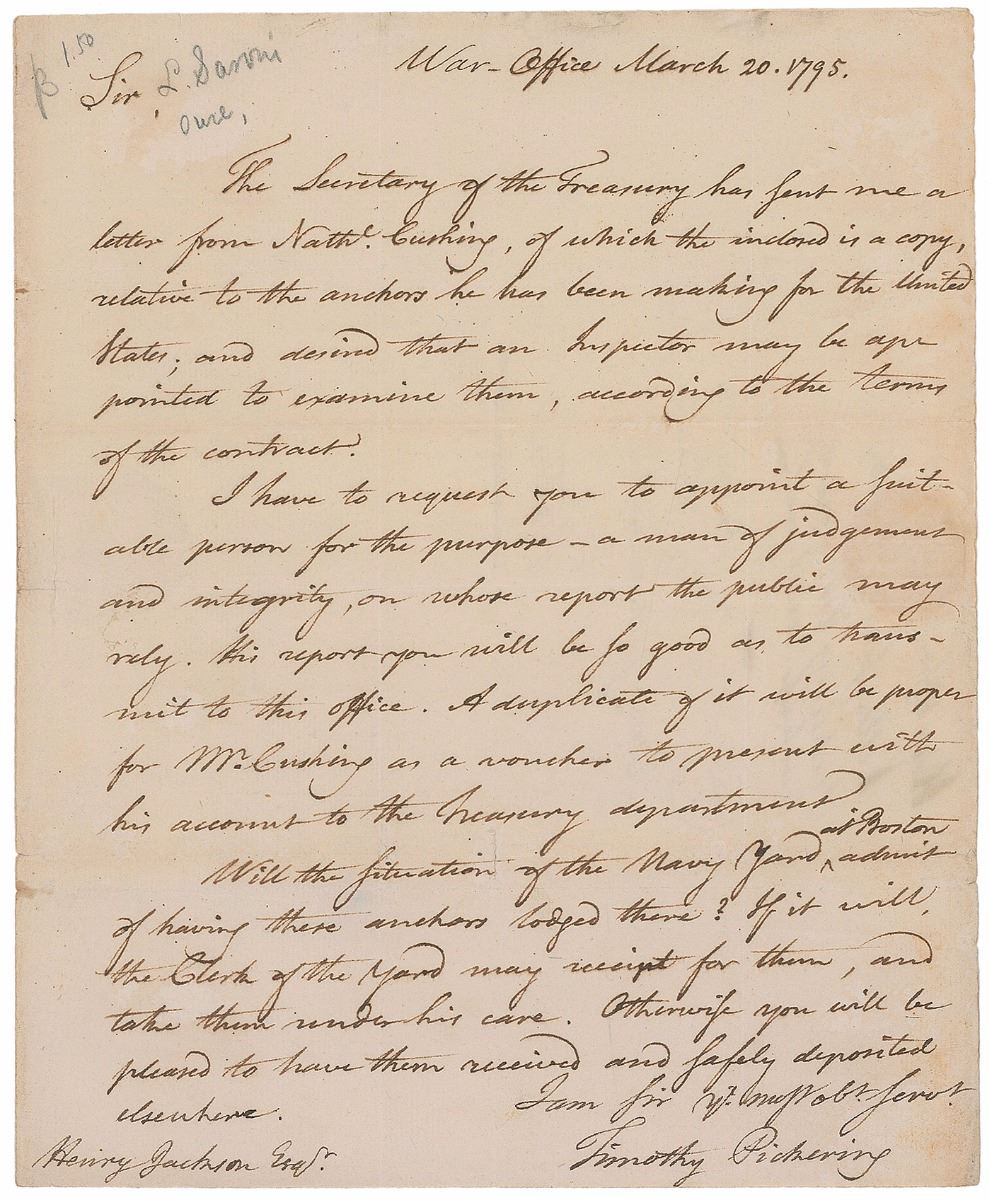 War-Office March 20. 1795.
1.50
Sir,
The Secretary of the Treasury has sent me a
letter from Nathl. Cushing, of which the inclosed is a copy,
relative to the anchors he has been making for the United
States; and desired that an Inspector may be ap
pointed to examine them, according to the terms
of the contract.
I have to request you to appoint a suit-
able person for the purpose - a man of judgement
and integrity, on whose report the public may
rely. His report you will be so good as to trans-
mit to this office. A duplicate of it will be proper
for Mr. Cushing as a voucher to present with
his account to the Treasury department
at Boston
Will the situation of the Navy Yard ^ admit
of having these anchors lodged there? If it will,
the Clerk of the Yard may receipt for them, and
take them under his care. Otherwise you will be
pleased to have them received and safely deposited
elsewhere.
I am sir yr. most obt. servt.
Timothy Pickering
Henry Jackson Esqr.